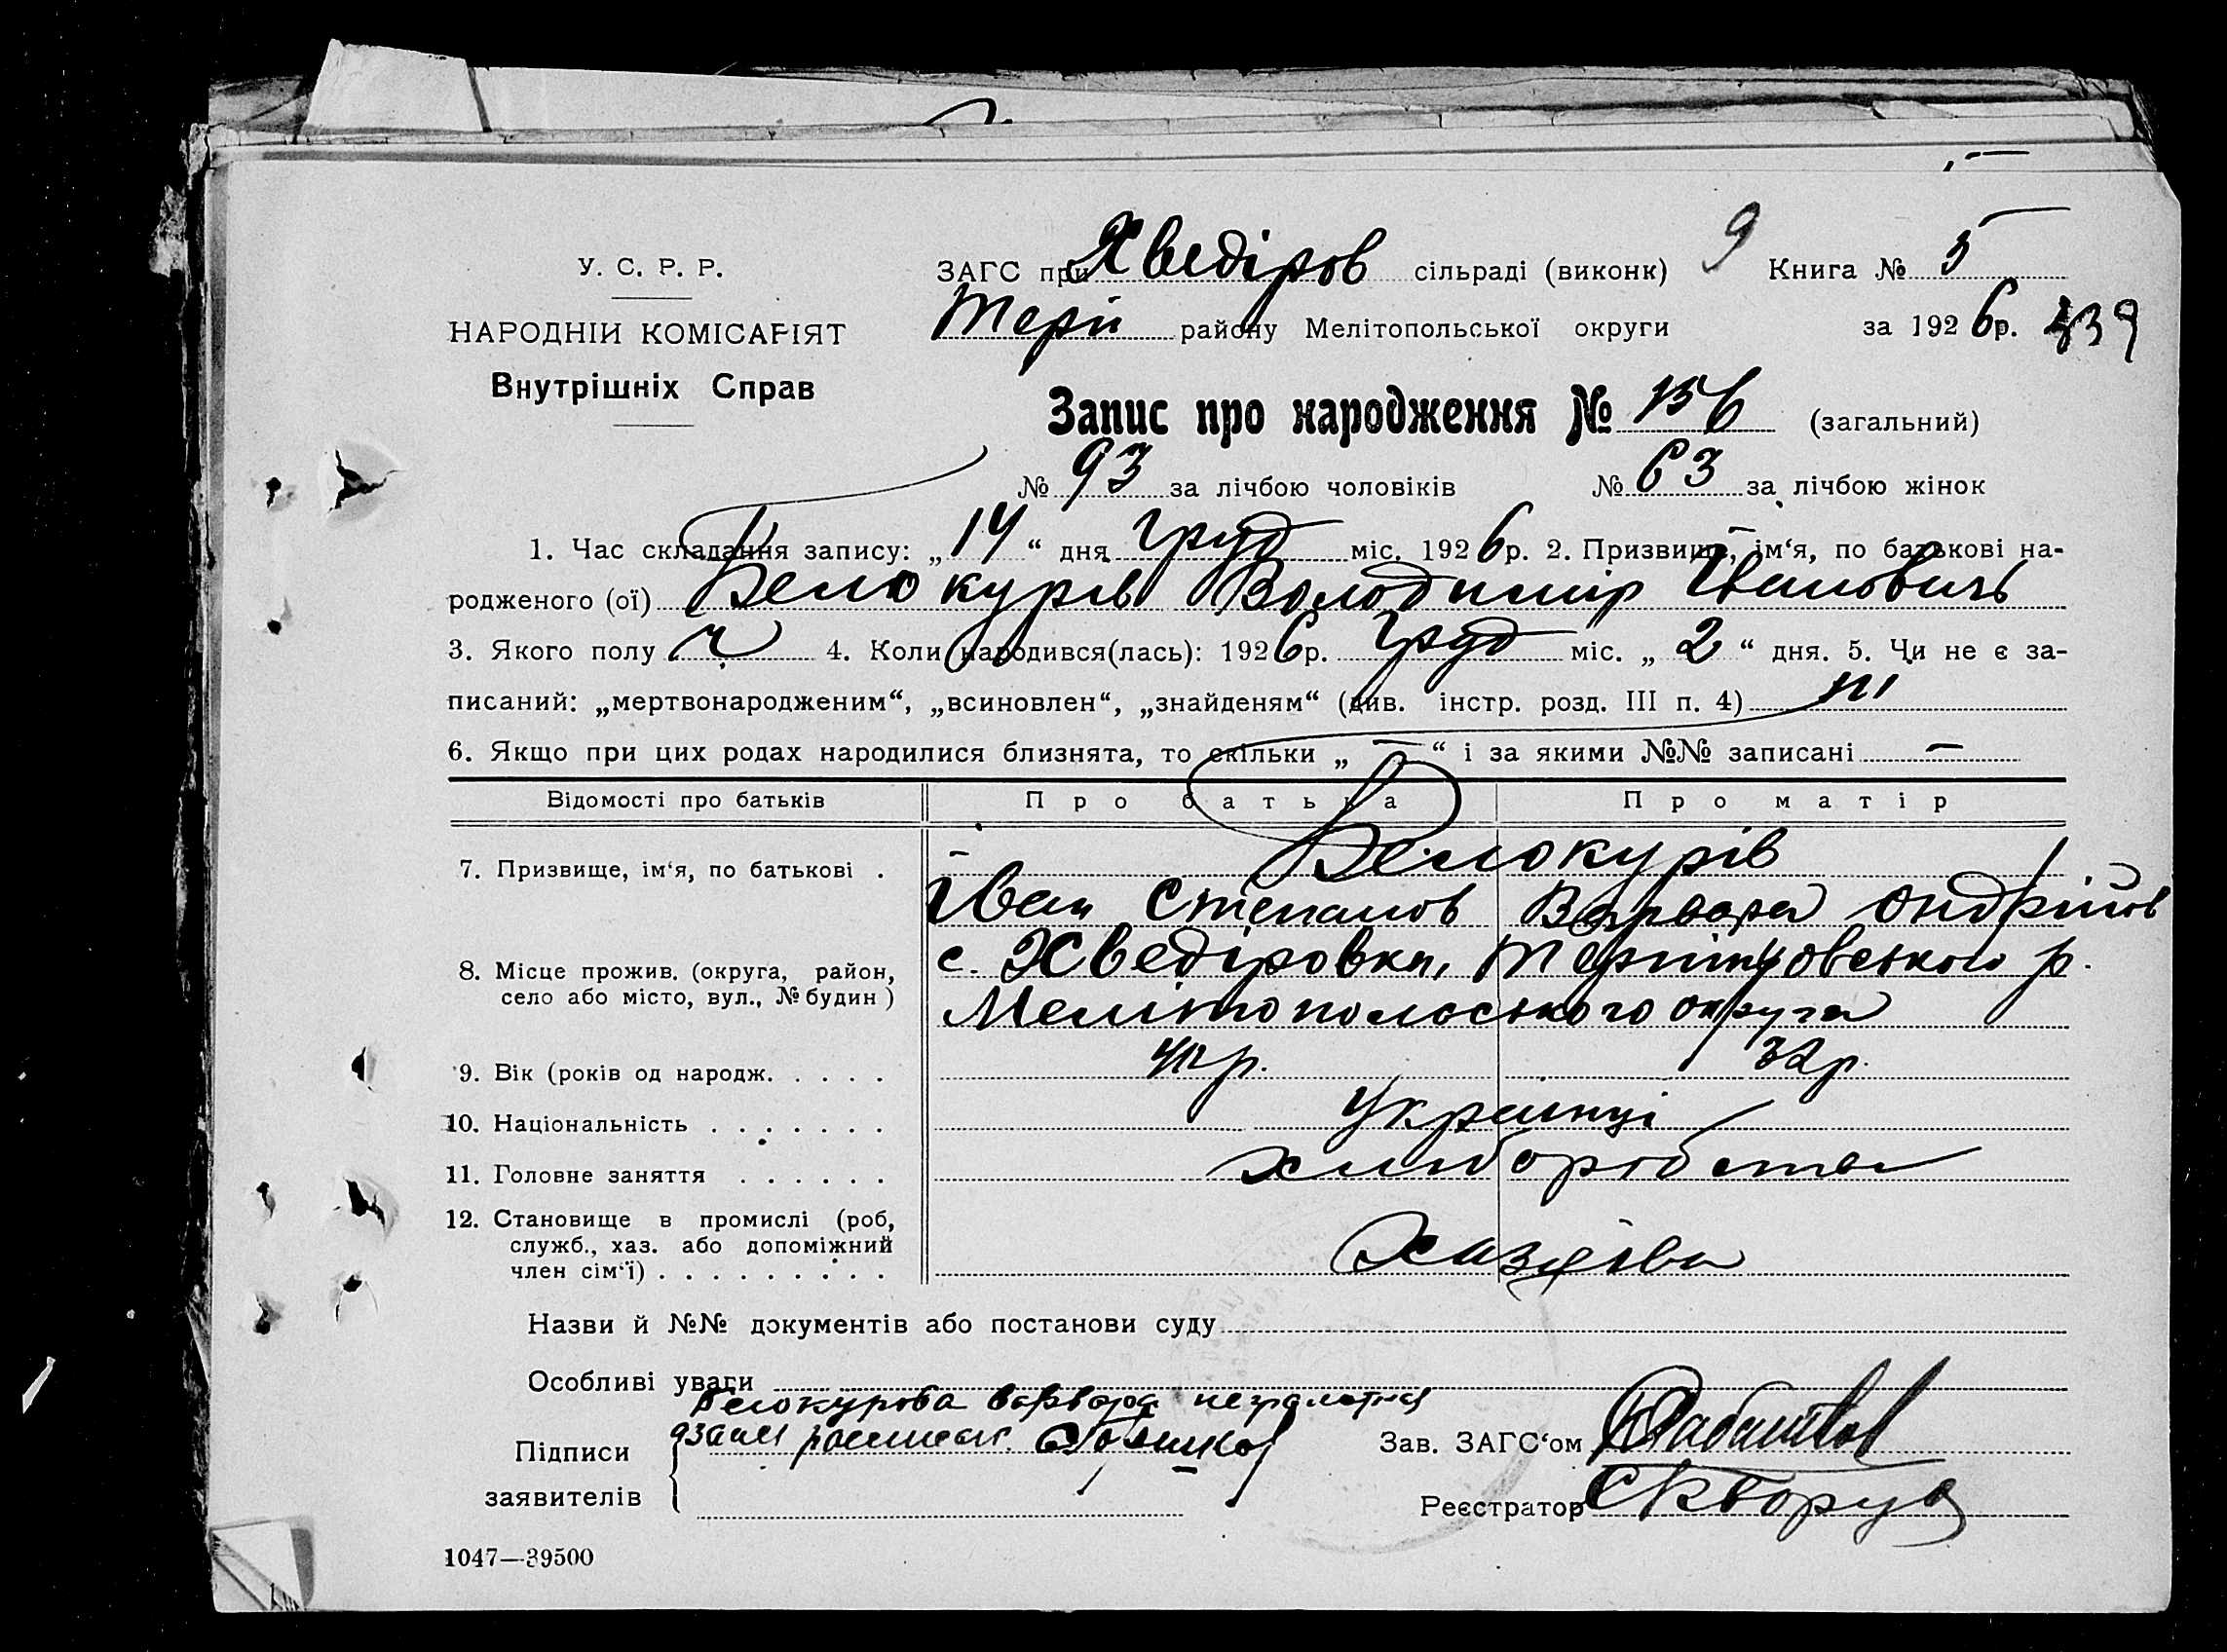 У. С. Р. Р.
НАРОДНІИ КОМІСАРІЯТ
Внутрішніх Справ
ЗАГС при Хведіров сільраді (виконк) 9 Книга № 5
Терп району Мелітопольської округи за 1926р. 339
Запис про народження № 156 (загальний)
№ 93 за лічбою чоловіків № 63 за лічбою жінок
1. Час складання запису: „14“ дня груд міс. 1926р. 2. Призвище, ім‘я, по батькові на-
родженого (ої) Белокурів Володимір Іванович
3. Якого полу ч 4. Коли народився(лась): 1926р. груд міс. „2“ дня. 5. Чи не є за-
писаний: „мертвонародженим“, „всиновлен“, „знайденям“ (див. інстр. розд. III п. 4) ні
6. Якщо при цих родах народилися близнята, то скільки „—“ і за якими №№ записані —
Відомості про батьків Про батька Про матір
7. Призвище, ім‘я, по батькові . Белокурів
Іван Степанов Варвара Ондрійов
8. Місце прожив. (округа, район, с. Хведіровка, Терпітуовського р.
село або місто, вул., № будин) Мелітопольського округа
9. Вік (років од народж. . . . . р. 32р.
10. Національність . . . . . . . Українці
11. Головне заняття . . . . . . хліборобства
12. Становище в промислі (роб,
служб., хаз. або допоміжний Хазяїва
член сім‘ї) . . . . . . . . .
Назви й №№ документів або постанови суду
Особливі уваги
Белокурова Варвара неграмотная
Підписи за нея роспис.
заявителів
Зав. ЗАГС‘ом
Реєстратор
1047—39500